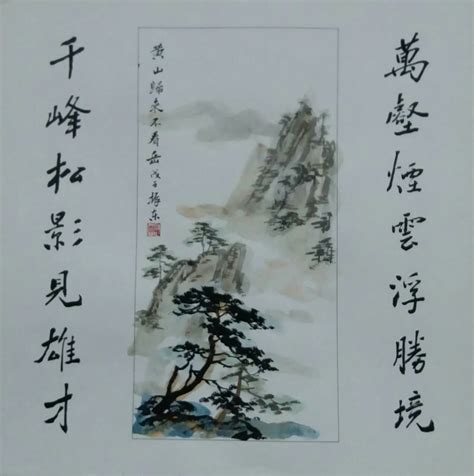 萬壑煙雲浮勝境
黄山歸来不看岳戊子振东
千峰松影見雄才